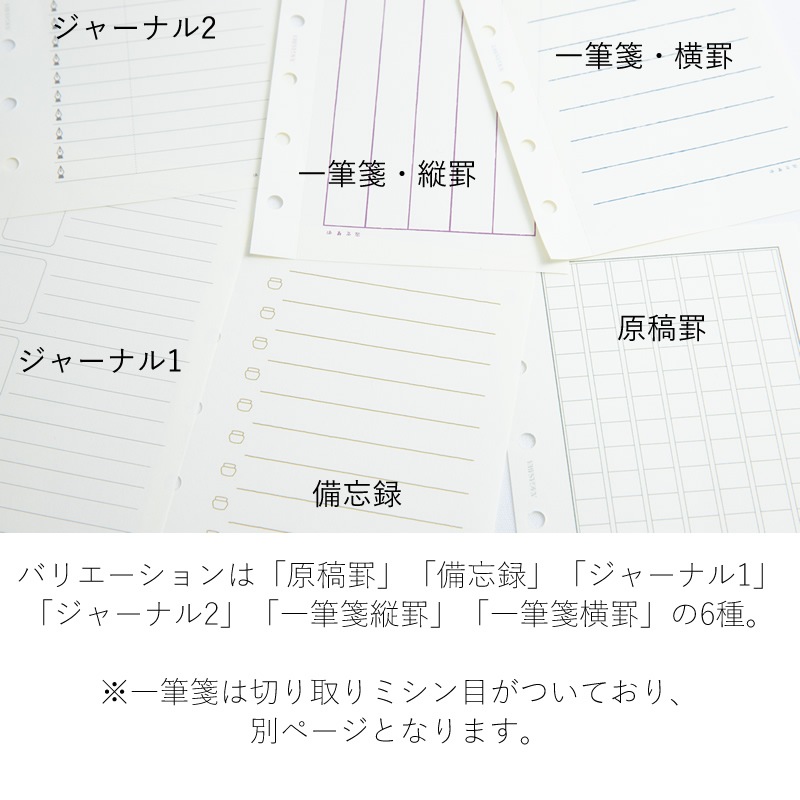 ジャーナル2
一筆箋・横罫
一筆箋・縦罫
原稿罫
ジャーナル1
備忘録
NAGASAWA
バリエーションは「原稿罫」「備忘録」「ジャーナル1」
「ジャーナル2」「一筆箋縦罫」「一筆箋横罫」の6種。
※一筆箋は切り取りミシン目がついており、
別ページとなります。